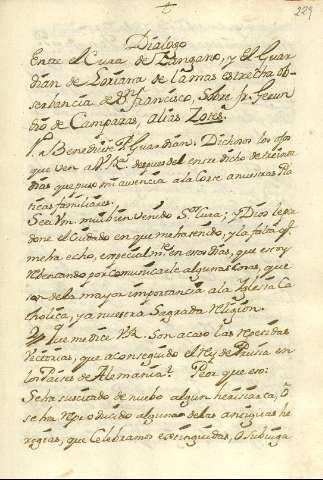 229
Dialogo
Entre el Cura de Zangano, y el Guar
dian de Loriana de la mas estrecha ob
serbancia de Sn. francisco, Sobre fr. Gerun
dio de Campazas, alias Zotes.
V.a Benedicite P. Guardian. Dichosos los ojos
que ven a V. R.a despues del entredicho de treinta
dias que puso mi ausencia a la Corte a nuestras Pla
ticas familiares.
Sea Vm. mui bien venido Sr. Cura; y Dios le per
done el Cuidado en que me ha tenido, y la falta q.e
me ha echo, en especial m.te en estos dias, que estoy
rebentando por comunicarle algunas cosas, que
son de la mayor importancia a la Iglesia Ca
tholica, y a nuestra Sagrada religion.
Y que me dice V. R. Son acaso las repetidas
Victorias, que a conseguido el rey de Prusia en
los Paises de Alemania? Peor que eso:
Se ha suscitado de nuebo algun heresiarca, ó
se ha reproducido alguna de las antiguas he
regias, que Celebramos extinguidas, ó subiuga